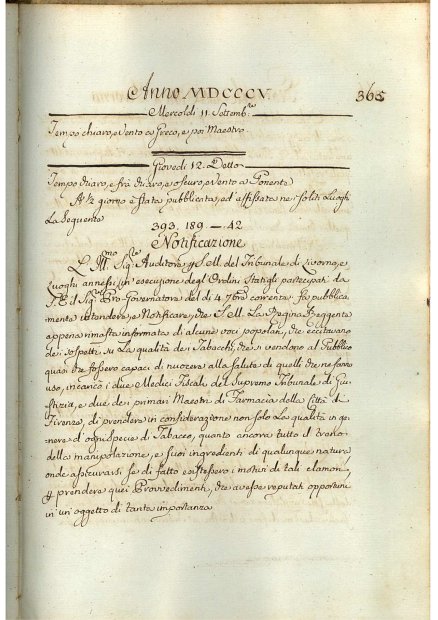 Anno MDCCCV. 365
Mercoldi 11 Settemb.re
Tempo chiaro, e Vento a Greco, e poi Maestro
Giovedi 12. Detto
Tempo chiaro, e frà chiaro, e oscuro, e Vento a Ponente
A ½ giorno è stata pubblicata, ed' affissata ne' soliti Luoghi
La Seguente
393. 189 — 42
Notificazione
L' Ill.mo Sig.re Auditore p S. M. del Tribunale di Livorno, e
Luoghi annessi, in esecuzione degl' Ordini Statigli partecipati da
S. E. il Sig.re Pro-Governatore del dì 4. 7bre corrente fa pubblica-
mente intendere, e Notificare, che S. M. La Regina Reggente
appena rimasta informata di alcune voci popolari, che eccitavano
de' sospetti su La qualità de i Tabacchi, che si vendono al Pubblico
quasi che fossero capaci di nuocere alla Salute di quelli che ne fanno
uso, incaricò i due Medici Fiscali del Supremo Tribunale di Giu-
stizia, e due dei primari Maestri di Farmacia della Città di
Firenze, di prendere in considerazione non solo La qualità in ge-
nere d' ogni specie di Tabacco, quanto ancora tutto il
della manipolazione, e suoi ingredienti di qualunque natura
onde assicurarsi se di fatto esistessero i motivi di tali clamori,
e prendere quei Provvedimenti, che avesse reputati opportuni
in un' oggetto di tanta importanza